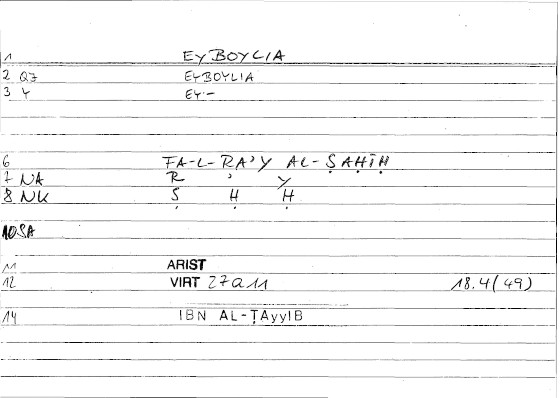 1 EyBOYLIA
2 Q7 EYBOYLIA
3 Y EY–
6 FA-L-RA’Y AL-ṢAḤĪḤ
7 NA R ’ Y
8 NK Ṣ Ḥ Ḥ
10 SA
11 ARIST
12 VIRT 27a11 18.4(49)
14 IBN AL-ṬAyyIB